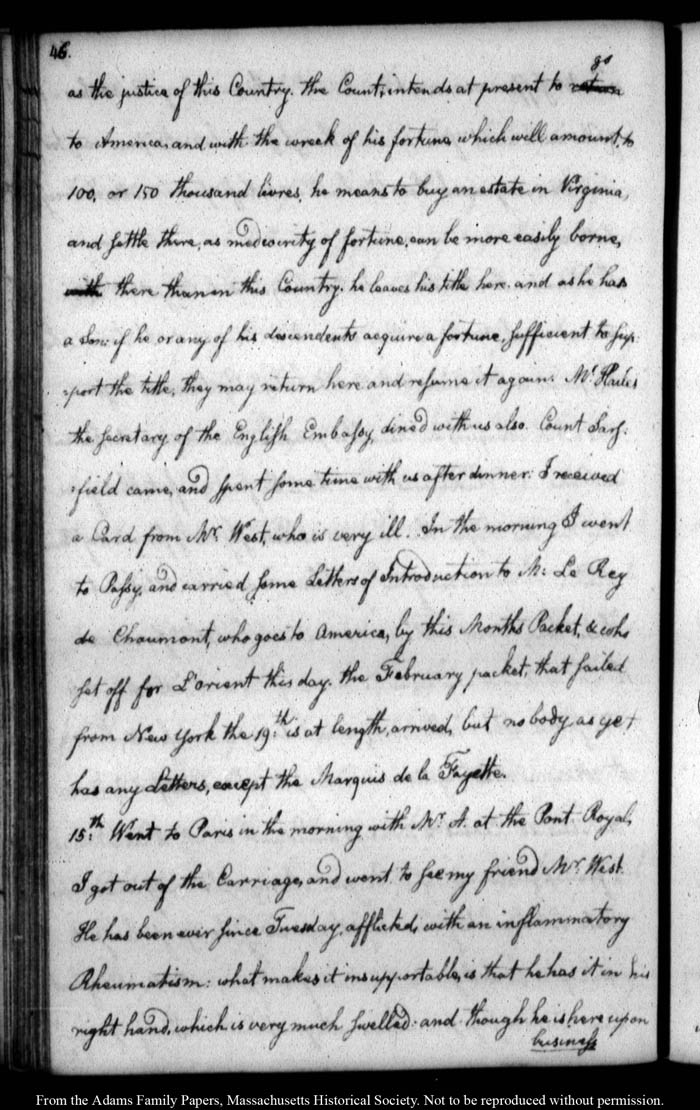 46.
go
as the justice of this Country. the Count, intends at present to return
to America, and with the wreck of his fortune, which will amount, to
100, or 150 thousand livres, he means to buy an estate in Virginia,
and settle there, as mediocrity of fortune, can be more easily borne,
with there than in this Country. he leaves his title here. and as he has
a Son: if he or any of his descendents acquire a fortune, sufficient to sup:
:port the title, they may return here and resume it again. Mr. Hailes
the Secretary of the English Embassy, dined with us also. Count Sars:
:field came, and spent some time with us after dinner: I received
a Card from Mr. West, who is very ill. In the morning I went
to Passy, and carried some Letters of Introduction to M: Le Rey
de Chaumont, who goes to America, by this Months Packet, & who
set off for L'orient this day. the February packet, that sailed
from New York the 19th: is at length, arrived, but nobody as yet
has any Letters, except the Marquis de la Fayette.
15th: Went to Paris in the morning with Mr. A. at the Pont Royal,
I got out of the Carriage, and went to see my friend Mr. West.
He has been ever since Tuesday, afflicted, with an inflammatory
Rheumatism: what makes it insupportable, is that he has it in his
right hand, which is very much swelled: and though he is here upon
business
From the Adams Family Papers, Massachusetts Historical Society. Not to be reproduced without permission.